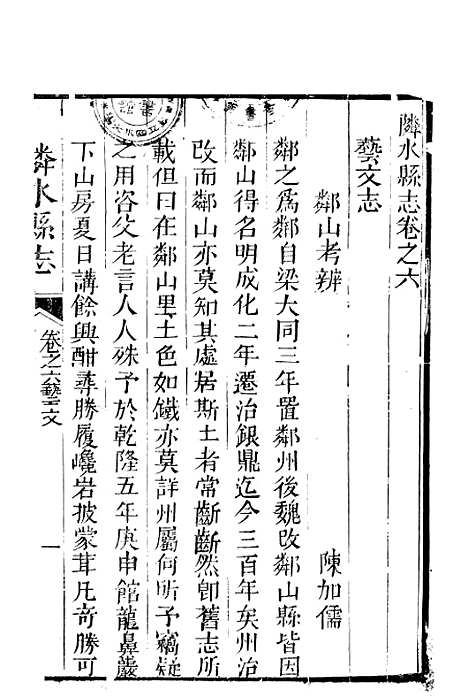 隣水縣志卷之六
藝文志
鄰山考辨 陳加儒
鄰之爲鄰自梁大同三年置鄰州後魏改鄰山縣皆因
鄰山得名明成化二年遷治銀鼎迄今三百年矣州治
改而鄰山亦莫知其處居斯土者常齗齗然卽舊志所
載但曰在鄰山里土色如鐵亦莫詳州屬何所予竊疑
之用咨父老言人人殊予於乾隆五年庚申館龍鼻巖
下山房夏日講餘興酣尋勝履巉岩披蒙茸凡奇勝可
鄰水縣志 卷之六藝文 一